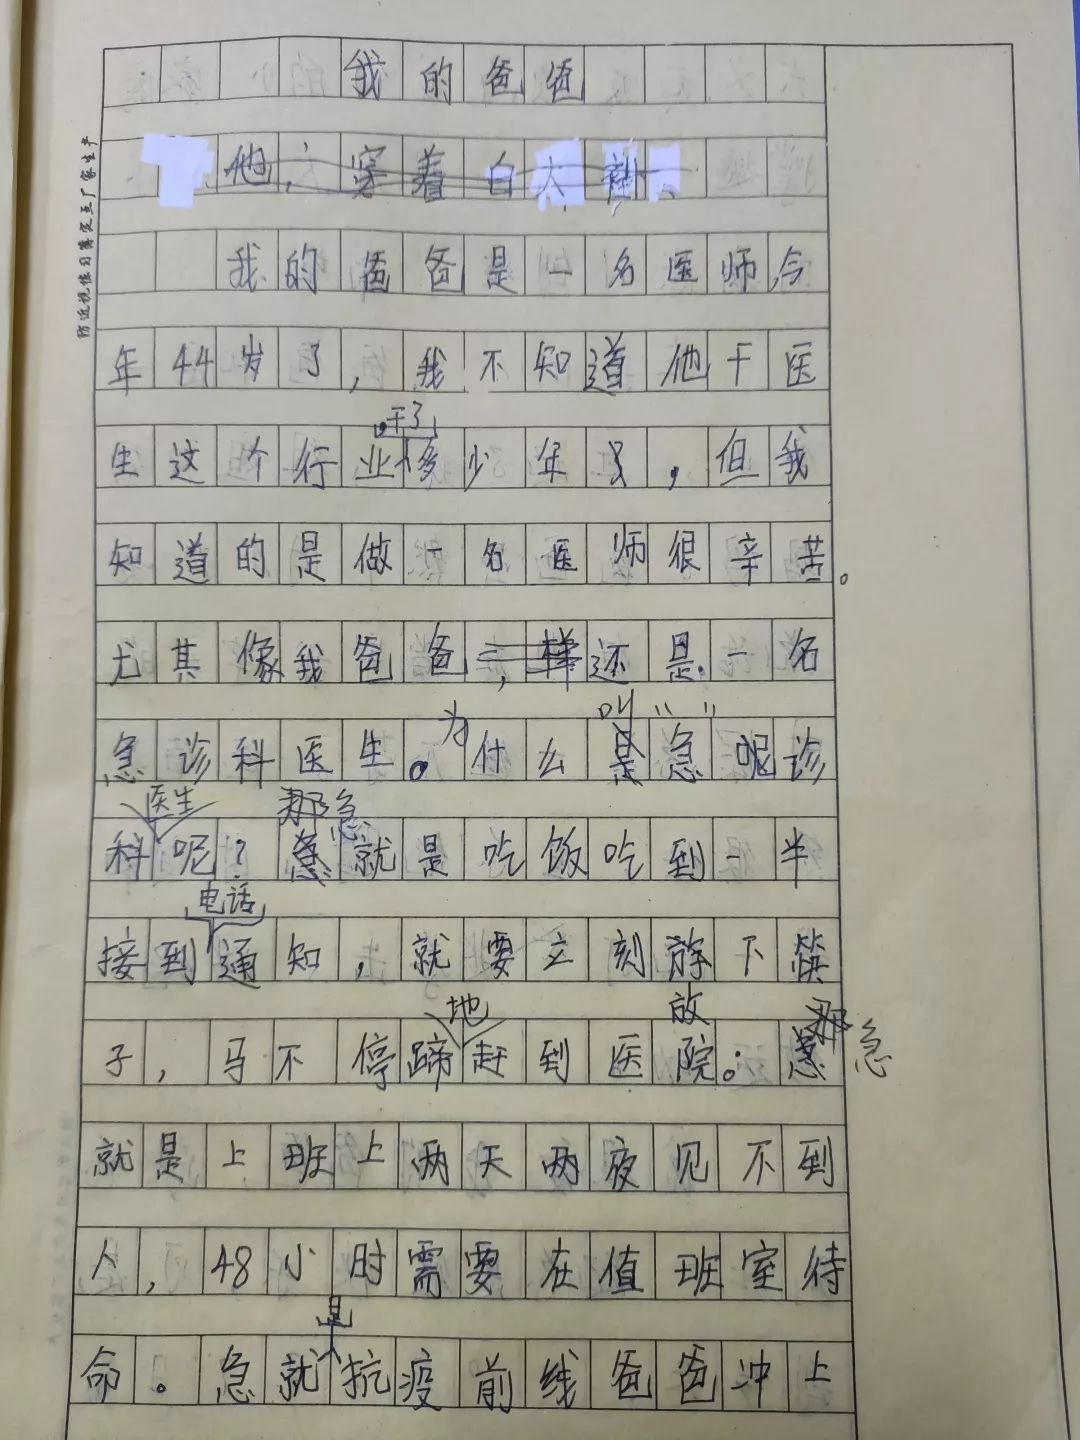 我的爸爸
他，穿着白大
我的爸爸是一名医师，今
年44岁了，我不知道他干医
干了
生这个行业多少年，但我
知道的是做一名医师很辛苦。
尤其像我爸爸，样还是一名
叫“”
为
急诊科医生。什么是急呢诊
医生
那急
科呢？急就是吃饭吃到一半
电话
接到通知，就要立刻下筷
放
地
那急
子，马不停蹄赶到医院。急
就是上班上两天两夜见不到
人，48小时需要在值班室待
是
命。急就抗疫前线爸爸冲上
防近视练习簿定点厂家生产